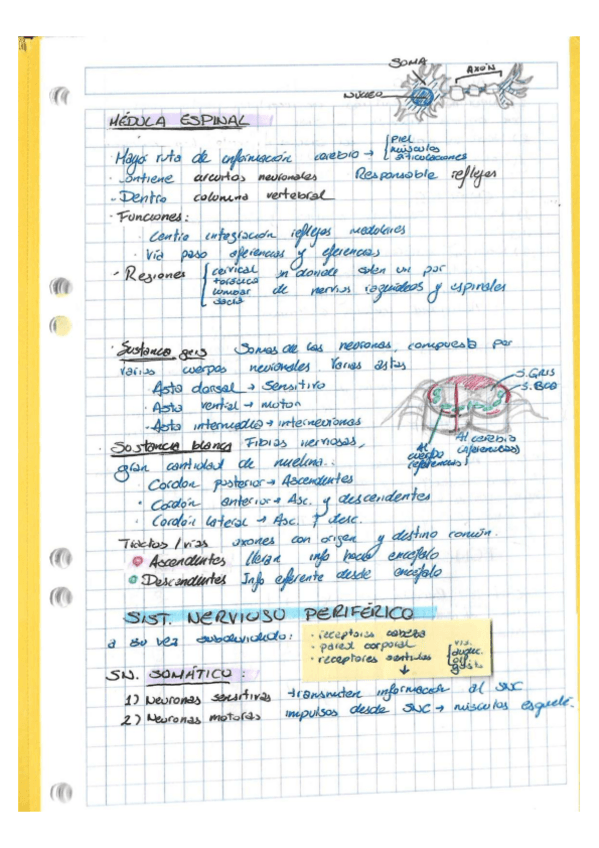 SOMA
AXÓN
NÚCLEO
MÉDULA ESPINAL
· Mayor ruta de información cerebro → { piel
músculos
articulaciones
· Contiene circuitos neuronales Responsable reflejos
· Dentro columna vertebral
· Funciones:
· Centro integración reflejos medulares
· Vía paso aferencias y eferencias
· Regiones { cervical
torácica
lumbar
sacra
en donde salen un par
de nervios raquídeos y espinales
· Sustancia gris Somas de las neuronas, compuesta por
varios cuerpos neuronales Varias astas
· Asta dorsal → Sensitivo
· Asta ventral → motor
· Asta intermedia → interneuronas
S. GRIS
S. BCA
Al cerebro
(aferencias)
Al
cuerpo
(eferencias)
· Sustancia blanca Fibras nerviosas,
gran cantidad de mielina.:
· Cordón posterior → Ascendentes
· Cordón anterior → Asc. y descendentes
· Cordón lateral → Asc. y desc.
Tractos/vías axones con origen y destino común.
Ascendentes llevan info hacia encéfalo
Descendentes Info eferente desde encéfalo
SIST. NERVIOSO PERIFÉRICO
a su vez subdividido:
· receptores cabeza
· pared corporal
· receptores sentidos { vis.
audic.
olf
gust.
SN. SOMÁTICO:
1) Neuronas sensitivas → transmiten información al SNC
2) Neuronas motoras impulsos desde SNC → músculos esquelé.